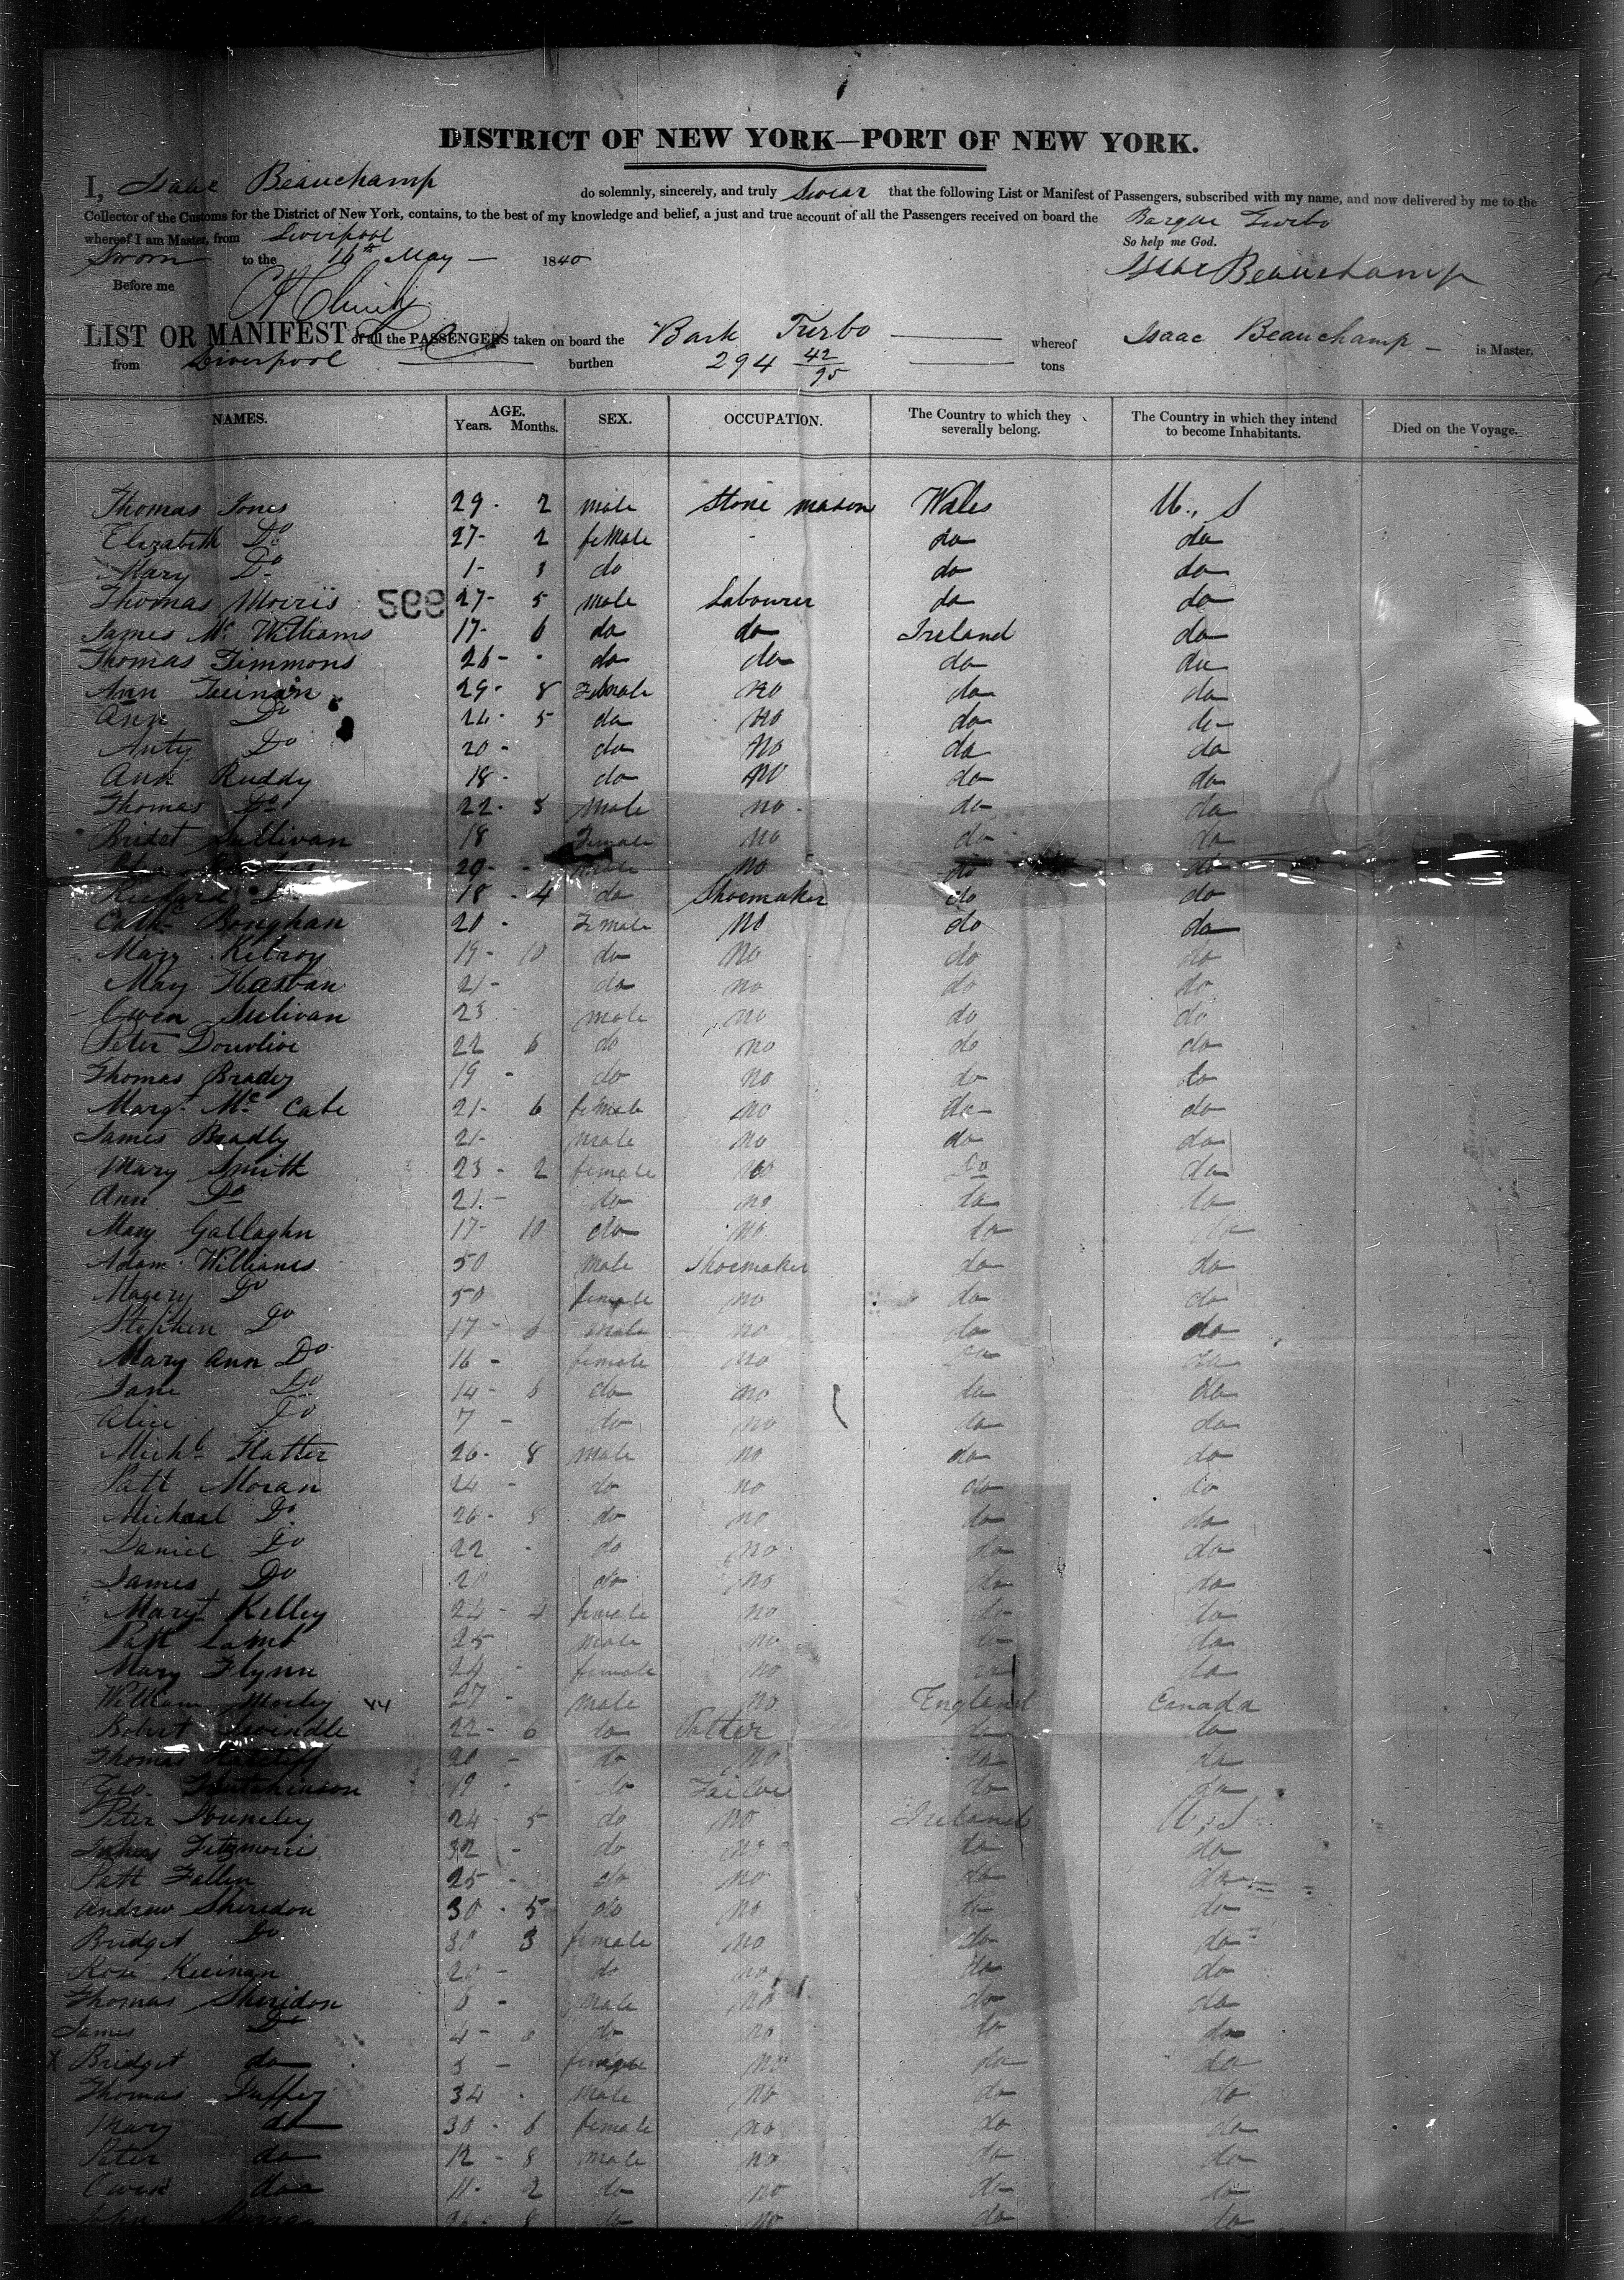 DISTRICT OF NEW YORK—PORT OF NEW YORK.
I, Isaac Beauchamp do solemnly, sincerely, and truly Swear that the following List or Manifest of Passengers, subscribed with my name, and now delivered by me to the
Collector of the Customs for the District of New York, contains, to the best of my knowledge and belief, a just and true account of all the Passengers received on board the Barque Turbo
whereof I am Master, from Liverpool So help me God.
Sworn to the 16th May — 1840 Isaac Beauchamp
Before me
LIST OR MANIFEST of all the PASSENGERS taken on board the Bark Turbo whereof Isaac Beauchamp is Master,
from Liverpool burthen 294 42/95 tons
NAMES. AGE. Years. Months. SEX. OCCUPATION. The Country to which they severally belong. The Country in which they intend to become Inhabitants. Died on the Voyage.
Thomas Jones 29 - 2 male Stone mason Wales U., S
Elizabeth Do 27 - 2 female - do do
Mary Do 1 - 3 do do do
Thomas Morris 27 - 5 male Labourer do do
James Mc Williams 17 - 6 do do Ireland do
Thomas Timmons 26 - do do do do
Ann 29 - 8 Female no do do
Ann Do 5 do no do do
Do 20 - do no do do
Ann Ruddy 18 - do no do do
Thomas Do 22 - 5 male no do do
Bridet Sullivan 18 Female no do do
20 - male no do do
Richard Do 18 - 4 do Shoemaker do do
Cathe 20 - Female no do do
Mary Kilroy 19 - 10 do no do do
May 21 - do no do do
Owen Sulivan 23 male no do do
Peter 22 6 do no do do
Thomas Brady 19 - do no do do
Margt Mc Cabe 21 - 6 female no do do
James Bradly 21 - male no do do
Mary Smith 23 - 2 female no Do do
Ann Do 21 - do no do do
Mary Gallaghn 17 - 10 do no do do
Adam Williams 50 male Shoemaker do do
Magery Do 50 female no do do
Stephen Do 17 - 6 male no do do
Mary Ann Do 16 - female no do do
Jane Do 14 - 6 do no do do
Alice Do 7 - do no do do
Michl Flatter 26 - 8 male no do do
Patt Moran 24 - do no do do
Michael Do 26 - 8 do no do do
Daniel Do 22 - do no do do
James Do 20 do no do do
Margt Kelley 24 - 4 female no do do
Patt Lamb 25 male no do do
Mary Flynn 24 - female no do do
William Morley 27 - male no England Canada
Robert Swindle 22 - 6 do do do
Thomas 20 - do no do do
Geo. Hutchinson 19 - do do do
Peter 24 - 5 do no Ireland U, S
Fitzmorris 32 - do no do do
Patt Fallen 25 - do no do do
Andrew Sheridon 30 - 5 do no do do
Bridget Do 30 3 female no do do
Rose 20 - do no do do
Thomas Sheridon 6 - male no do do
James Do 4 - do no do do
X Bridget do 3 - female no do do
Thomas Duffey 34 - male no do do
Mary do 30 - 6 female no do do
Peter do 12 - 8 male no do do
Owen do 11 - 2 do no do do
John 26 - 8 do no do do